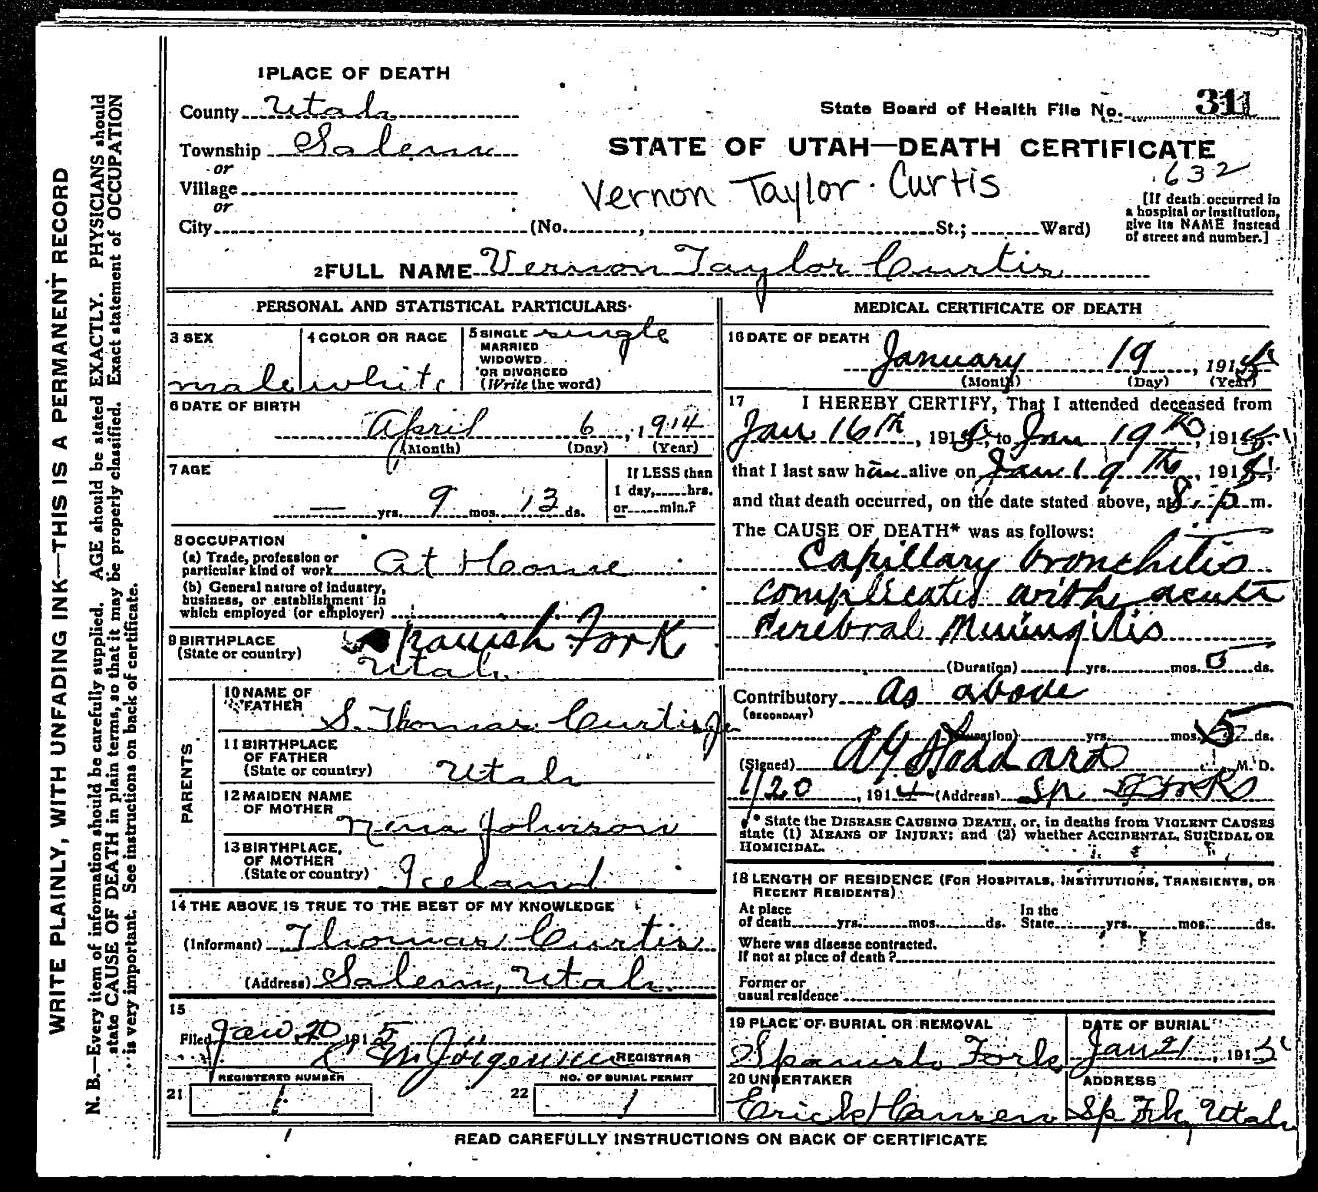 WRITE PLAINLY, WITH UNFADING INK—THIS IS A PERMANENT RECORD
N. B.—Every item of information should be carefully supplied. AGE should be stated EXACTLY. PHYSICIANS should
state CAUSE OF DEATH in plain terms, so that it may be properly classified. Exact statement of OCCUPATION
is very important. See instructions on back of certificate.
1 PLACE OF DEATH
County Utah
Township Salem
or
Village
or
City (No. , St.; Ward)
State Board of Health File No. 311
STATE OF UTAH—DEATH CERTIFICATE
632
Vernon Taylor Curtis
[If death occurred in
a hospital or institution,
give its NAME instead
of street and number.]
2 FULL NAME Vernon Taylor Curtis
PERSONAL AND STATISTICAL PARTICULARS
3 SEX
male
4 COLOR OR RACE
white
5 SINGLE single
MARRIED
WIDOWED
OR DIVORCED
(Write the word)
6 DATE OF BIRTH
April 6, 1914
(Month) (Day) (Year)
7 AGE
— yrs. 9 mos. 13 ds.
If LESS than
1 day, hrs.
or min.?
8 OCCUPATION
(a) Trade, profession or
particular kind of work At Home
(b) General nature of industry,
business, or establishment in
which employed (or employer)
9 BIRTHPLACE
(State or country)
Spanish Fork
Utah
PARENTS
10 NAME OF
FATHER
S. Thomas Curtis Jr
11 BIRTHPLACE
OF FATHER
(State or country) Utah
12 MAIDEN NAME
OF MOTHER
Nina Johnson
13 BIRTHPLACE
OF MOTHER
(State or country) Iceland
14 THE ABOVE IS TRUE TO THE BEST OF MY KNOWLEDGE
(Informant) Thomas Curtis
(Address) Salem, Utah
15
Filed Jan 20 1915
REGISTRAR
REGISTERED NUMBER
21 1
NO. OF BURIAL PERMIT
22 1
MEDICAL CERTIFICATE OF DEATH
16 DATE OF DEATH
January 19, 1915
(Month) (Day) (Year)
17 I HEREBY CERTIFY, That I attended deceased from
Jan 16th, 1915, to Jan 19th, 1915,
that I last saw him alive on Jan 19th, 1915,
and that death occurred, on the date stated above, at 8 p m.
The CAUSE OF DEATH* was as follows:
Capillary bronchitis
complicated with acute
Cerebral Meningitis
(Duration) yrs. mos. 5 ds.
Contributory As above
(SECONDARY)
(Duration) yrs. mos. 5 ds.
(Signed) A Y Stoddard M. D.
1/20, 191 (Address) Sp Forks
* State the DISEASE CAUSING DEATH, or, in deaths from VIOLENT CAUSES
state (1) MEANS OF INJURY; and (2) whether ACCIDENTAL, SUICIDAL OR
HOMICIDAL.
18 LENGTH OF RESIDENCE (FOR HOSPITALS, INSTITUTIONS, TRANSIENTS, OR
RECENT RESIDENTS)
At place
of death yrs. mos. ds.
In the
State yrs. mos. ds.
Where was disease contracted,
If not at place of death?
Former or
usual residence
19 PLACE OF BURIAL OR REMOVAL
Spanish Fork
DATE OF BURIAL
Jan 21, 1915
20 UNDERTAKER
Erick Hansen
ADDRESS
Sp. Frk, Utah
READ CAREFULLY INSTRUCTIONS ON BACK OF CERTIFICATE